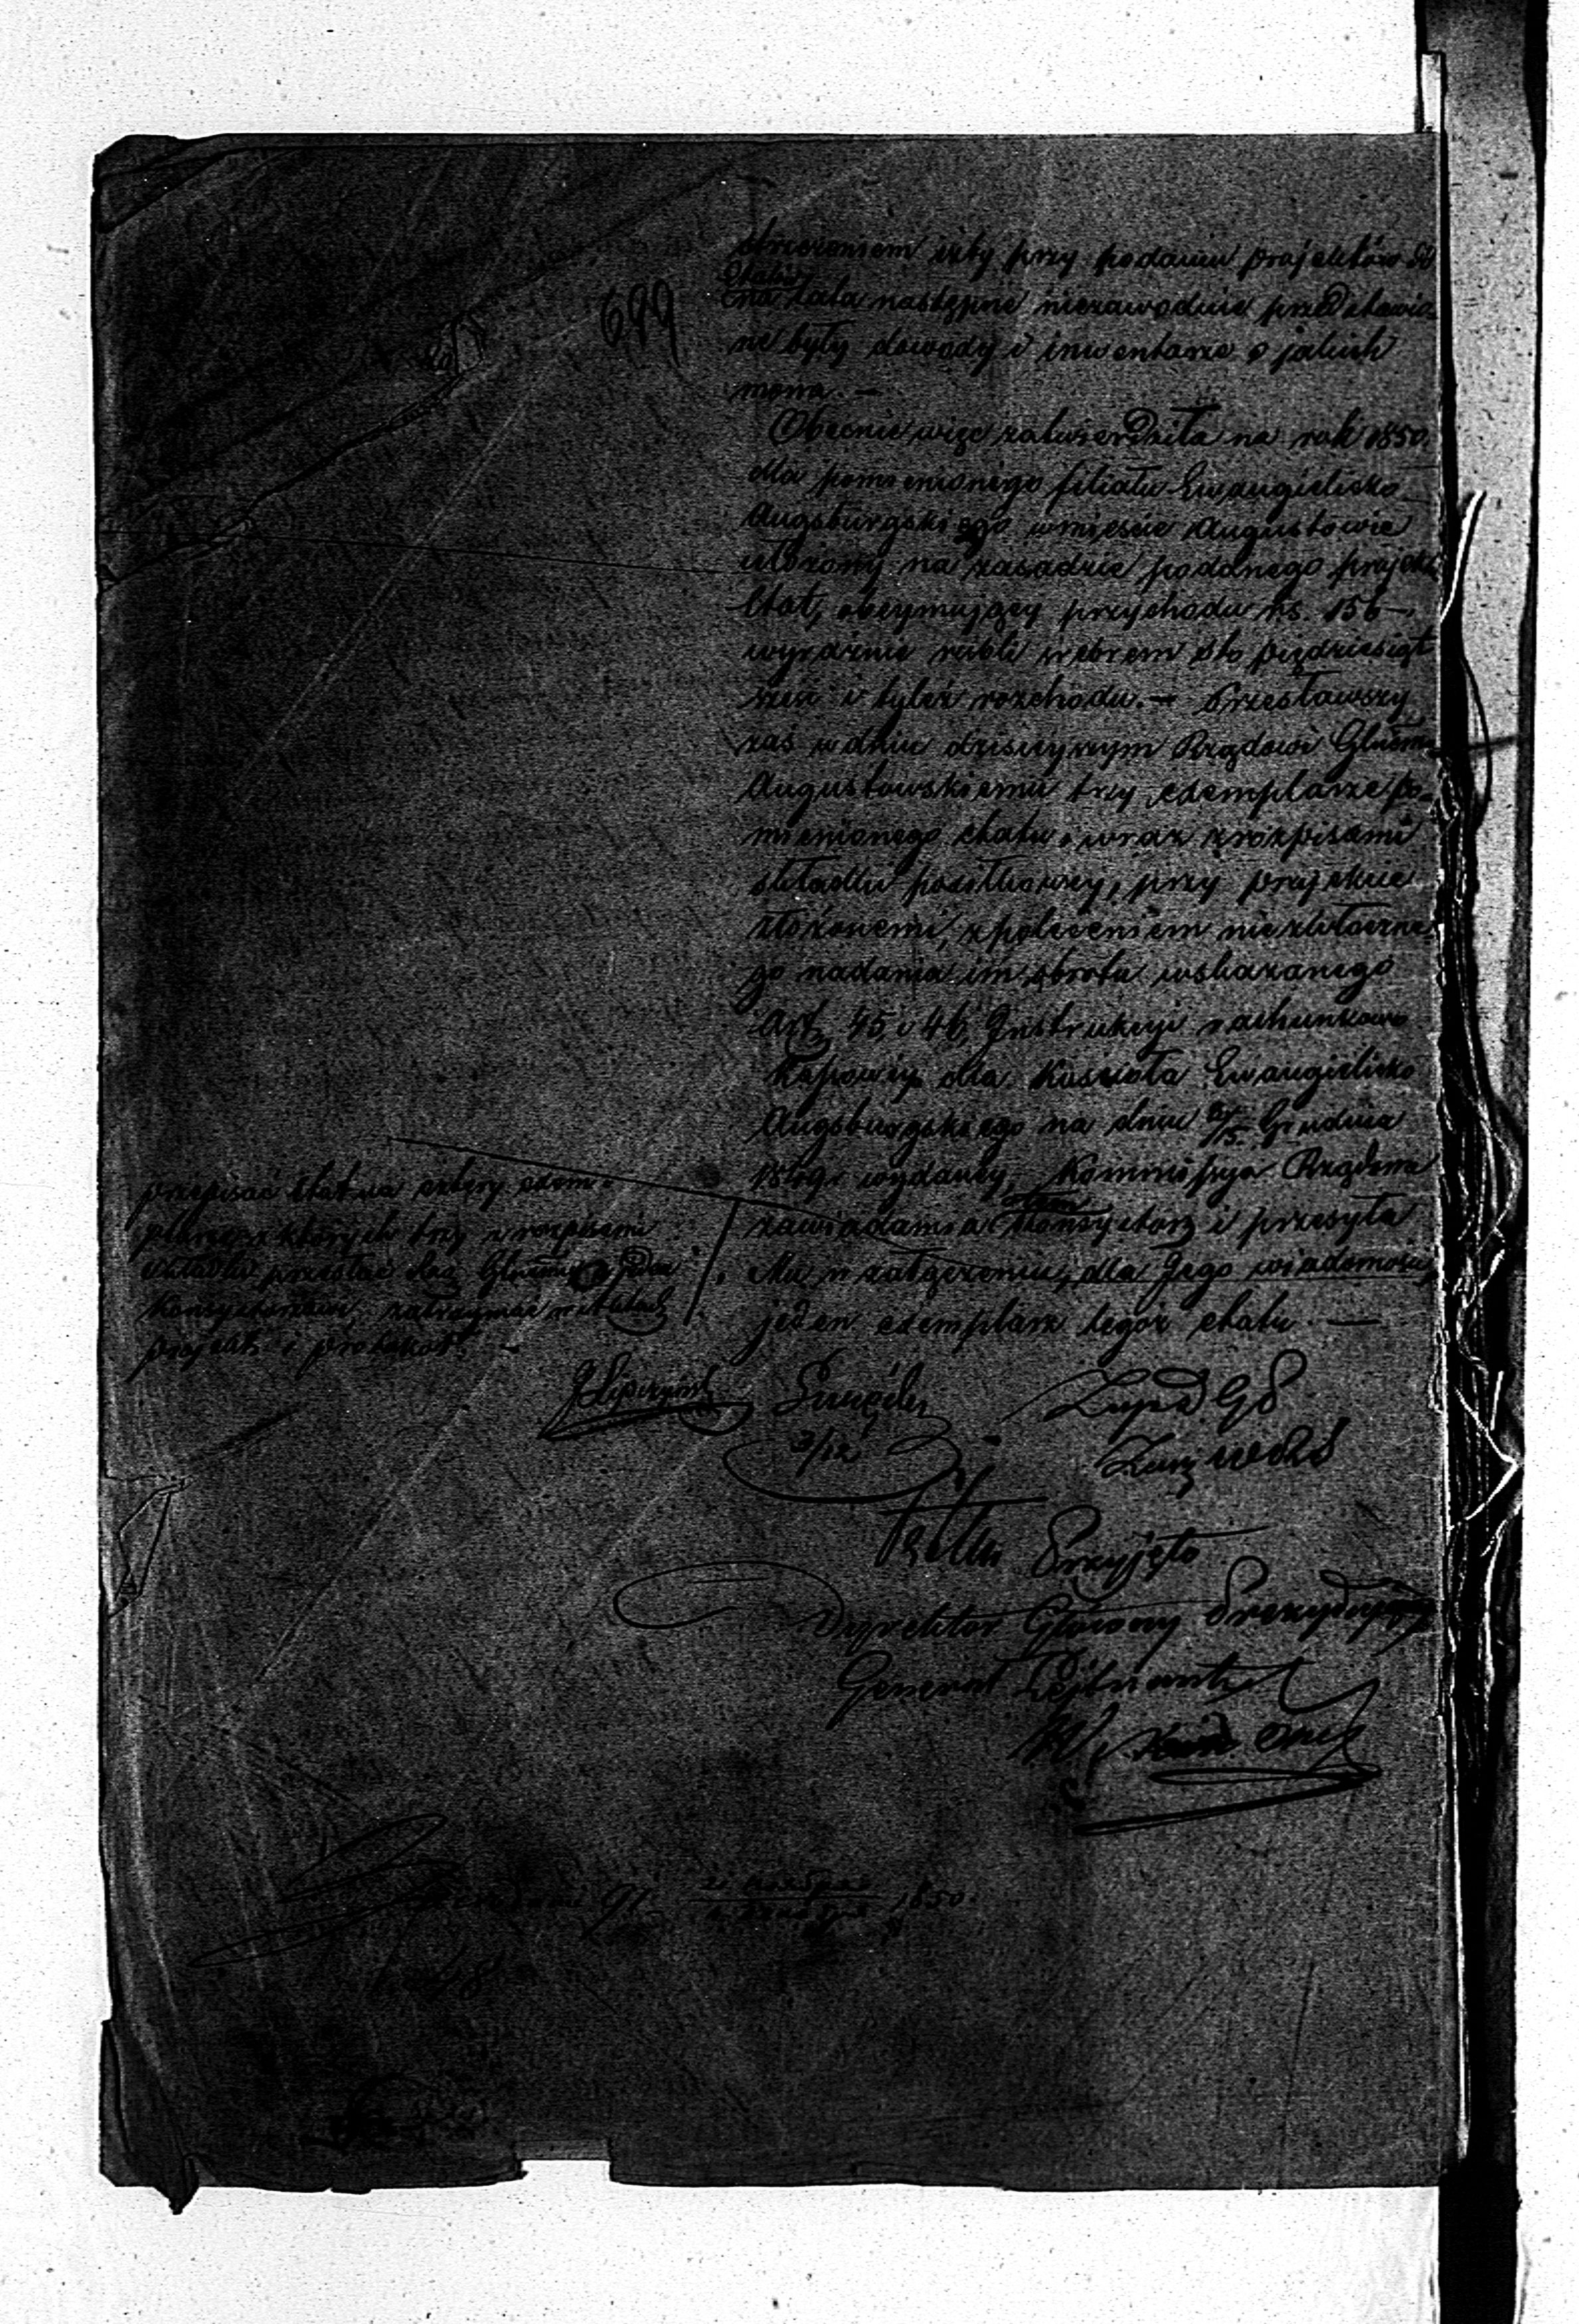 699
strzeżeniem iżby przy podaniu projektów do
Etatu
na lata następne niezawodnie przedstawio-
ne były dowody i inwentarze o jakich
mowa. —
Obecnie więc zatwierdziła na rok 1850.
dla pomienionego filiału Ewangielicko
Augsburgskiego w mieście Augustowie
ułożony na zasadzie podanego projektu
Etat, obejmujący przychodu rs. 156 —
wyraźnie rubli srebrem sto pięćdziesiąt
sześć i tyleż rozchodu. — Przesławszy
zaś w dniu dzisiejszym Rządowi Gbernu
Augustowskiemu trzy exemplarze po-
mienionego etatu, wraz z rozpisami
składki posiłkowej, przy projekcie
złożonemi, z poleceniem niezwłoczne-
go nadania im obrotu wskazanego
Art. 45 i 46, Instrukcyi rachunkowo
Kassowej dla Kościoła Ewangielicko
Augsburgskiego na dniu 3/15 Grudnia
1849 r. wydanej, Kommissyja Rządowa
zawiadamia o tem Konsystorz i przesyła
Mu w załączeniu, dla Jego wiadomości,
jeden exemplarz tegoż etatu. —
przepisać Etat na cztery exem-
plarze z których trzy z rozpisami
składki przesłać Rzą. Gber. a jeden
Konsystorzowi, zatrzymać w aktach
projekt i protokół. —
3/12
Przyjęto
Dyrektor Główny Prezydujący
Generał Lejtnant
21 ноября
1850